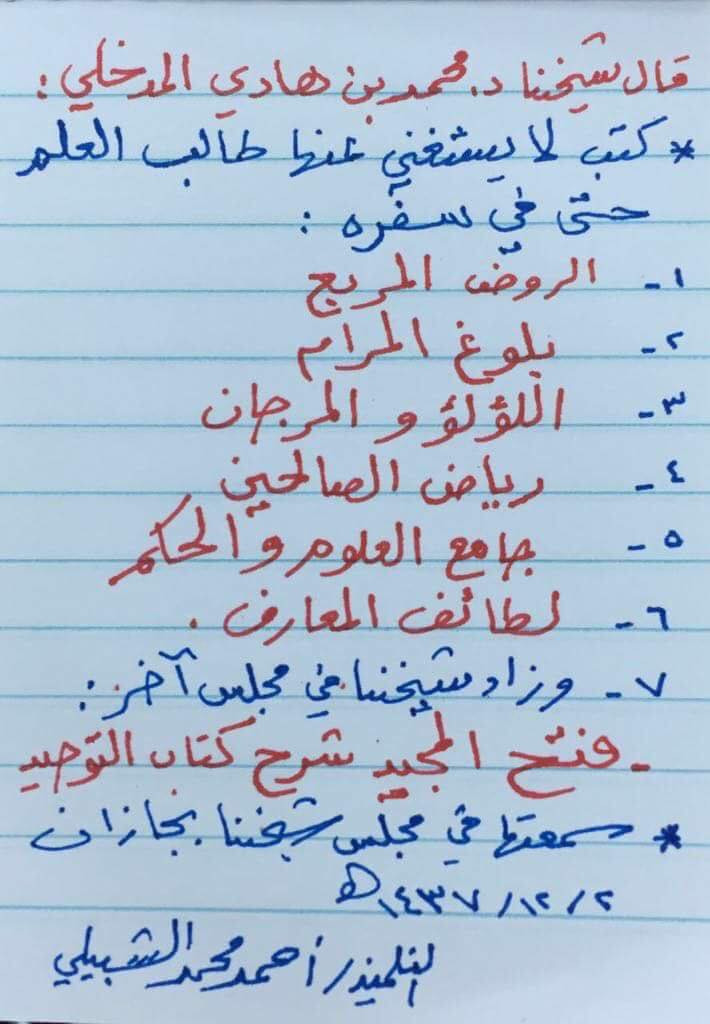 قال شيخنا د. محمد بن هادي المدخلي :
* كتب لا يستغني عنها طالب العلم
حتى في سفره :
١- الروض المربع
٢- بلوغ المرام
٣- اللؤلؤ و المرجان
٤- رياض الصالحين
٥- جامع العلوم و الحكم
٦- لطائف المعارف .
٧- وزاد شيخنا في مجلس آخر :
- فتح المجيد شرح كتاب التوحيد
* سمعتها في مجلس شيخنا بجازان
٢/ ١٢/ ١٤٣٧ هـ
التلميذ/ أحمد محمد الشبيلي